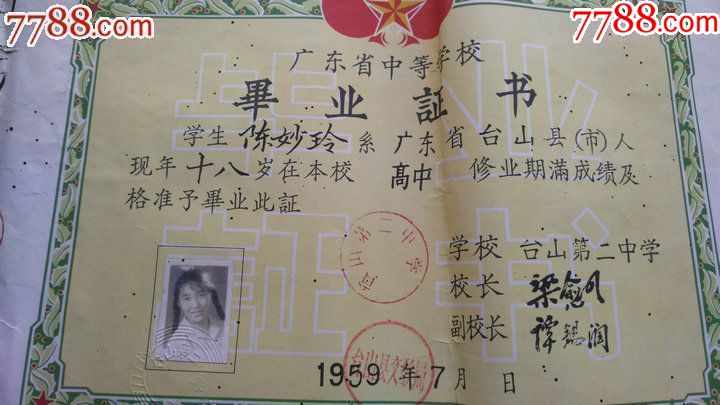 7788.com
7788.com
广东省中等学校
畢业証书
学生 陈妙玲 系 广东省台山县(市)人
现年十八岁在本校 高中 修业期滿成绩及
格准予畢业此証
台山第二中学
学校 台山第二中学
校长 梁
副校长 谭锡润
台山县文教局
1959 年 7 月 日